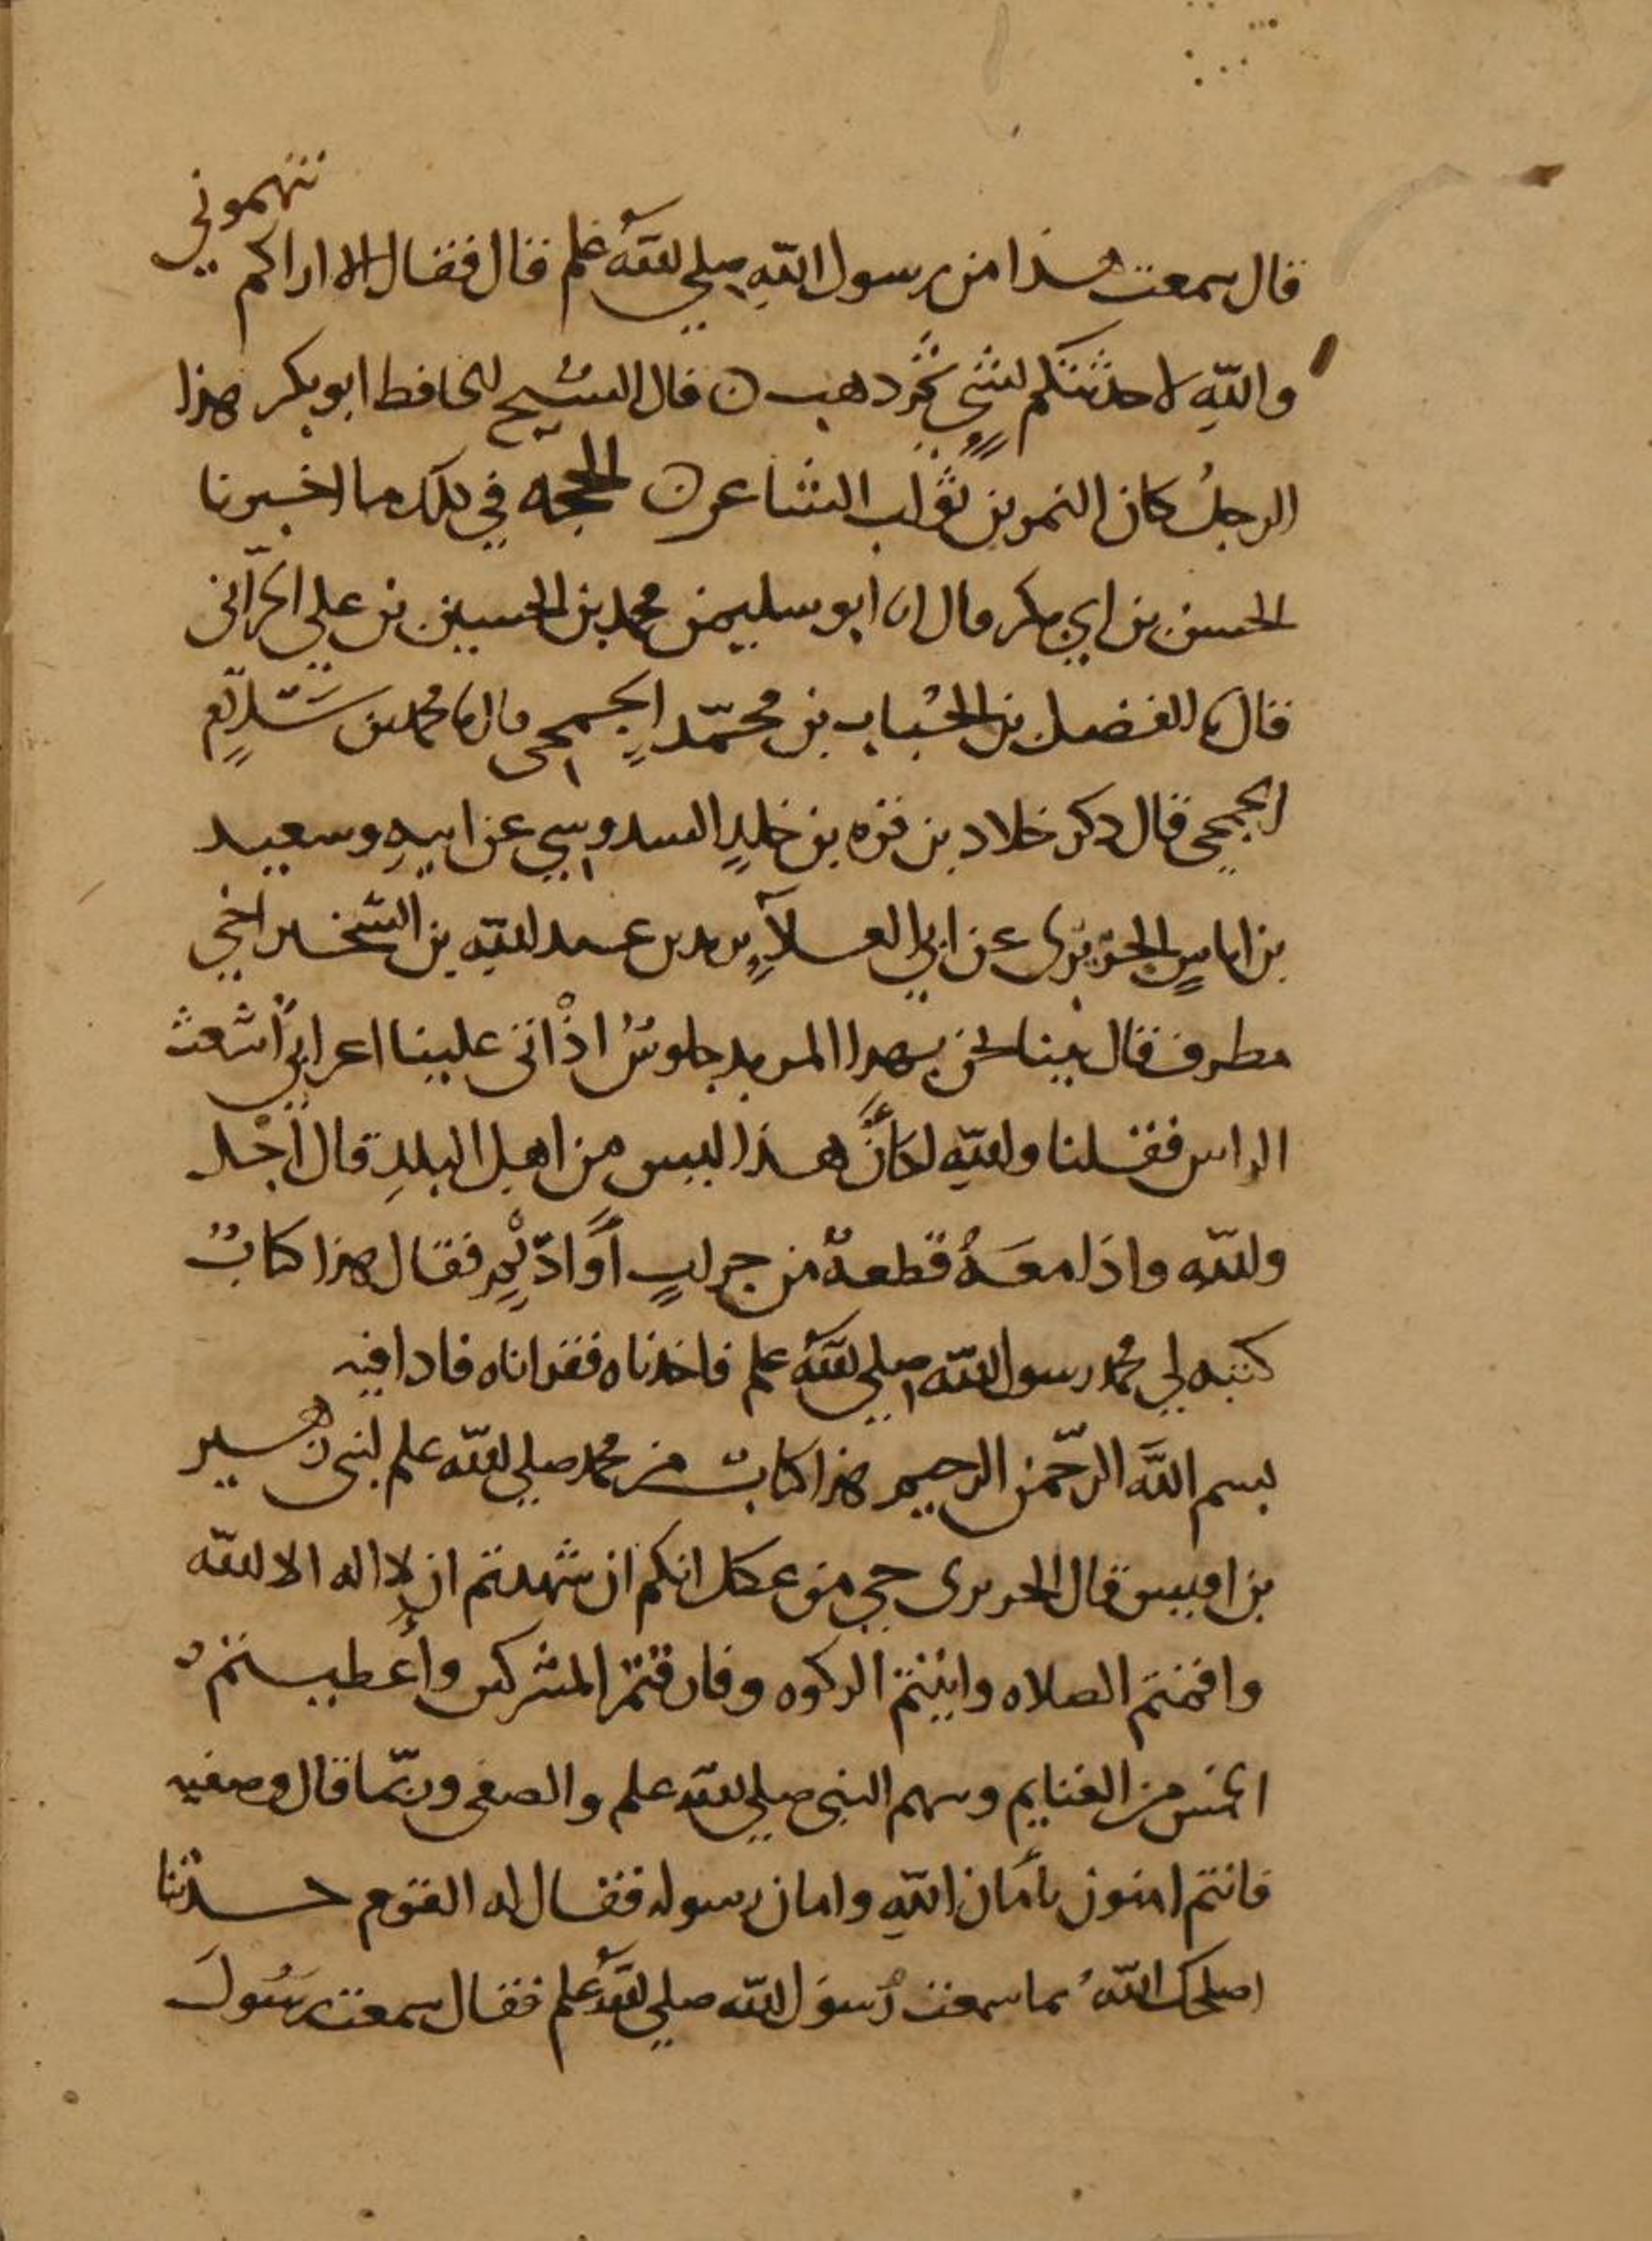 قال سمعت هذا من رسول الله صلى الله علم قال فقال الا اراكم تتهموني
والله لا حدثتكم بشي ثم ذهب ن قال الشيخ الحافظ ابو بكر هذا
الرجل كان النمر بن تولب الشاعر ن الحجه في ذلك ما اخبرنا
الحسن بن ابي بكر قال انا ابو سليمن محمد بن الحسين بن علي الحراني
قال نا الفضل بن الحباب بن محمد الجمحي قال نا محمد بن سلام
الجمحي قال ذكر خلاد بن قره بن خلد السدوسي عن ابيه وسعيد
بن اياس الجريري عن ابي العلاء يزيد بن عبد الله بن الشخير اخي
مطرف قال بينا نحن بهذا المربد جلوس اذ اتى علينا اعرابي اشعث
الراس فقلنا والله لكأن هذا ليس من اهل البلد قال اجل
والله واذا معه قطعة من جراب او اديم فقال هذا كتاب
كتبه لي محمد رسول الله صلي الله علم فاخذناه فقراناه فاذا فيه
بسم الله الرحمن الرحيم هذا كتاب من محمد صلي الله علم لبني زهير
بن اقيس قال الجريري حي من عكل انكم ان شهدتم ان لا اله الا الله
واقمتم الصلاه واتيتم الزكوه وفارقتم المشركين واعطيتم
الخمس من الغنايم وسهم النبي صلي الله علم والصفي وربما قال وصفيه
فانتم امنون بأمان الله وامان رسوله فقال له القوم حدثنا
اصلحك الله بما سمعت رسول الله صلي الله علم فقال سمعت رسول